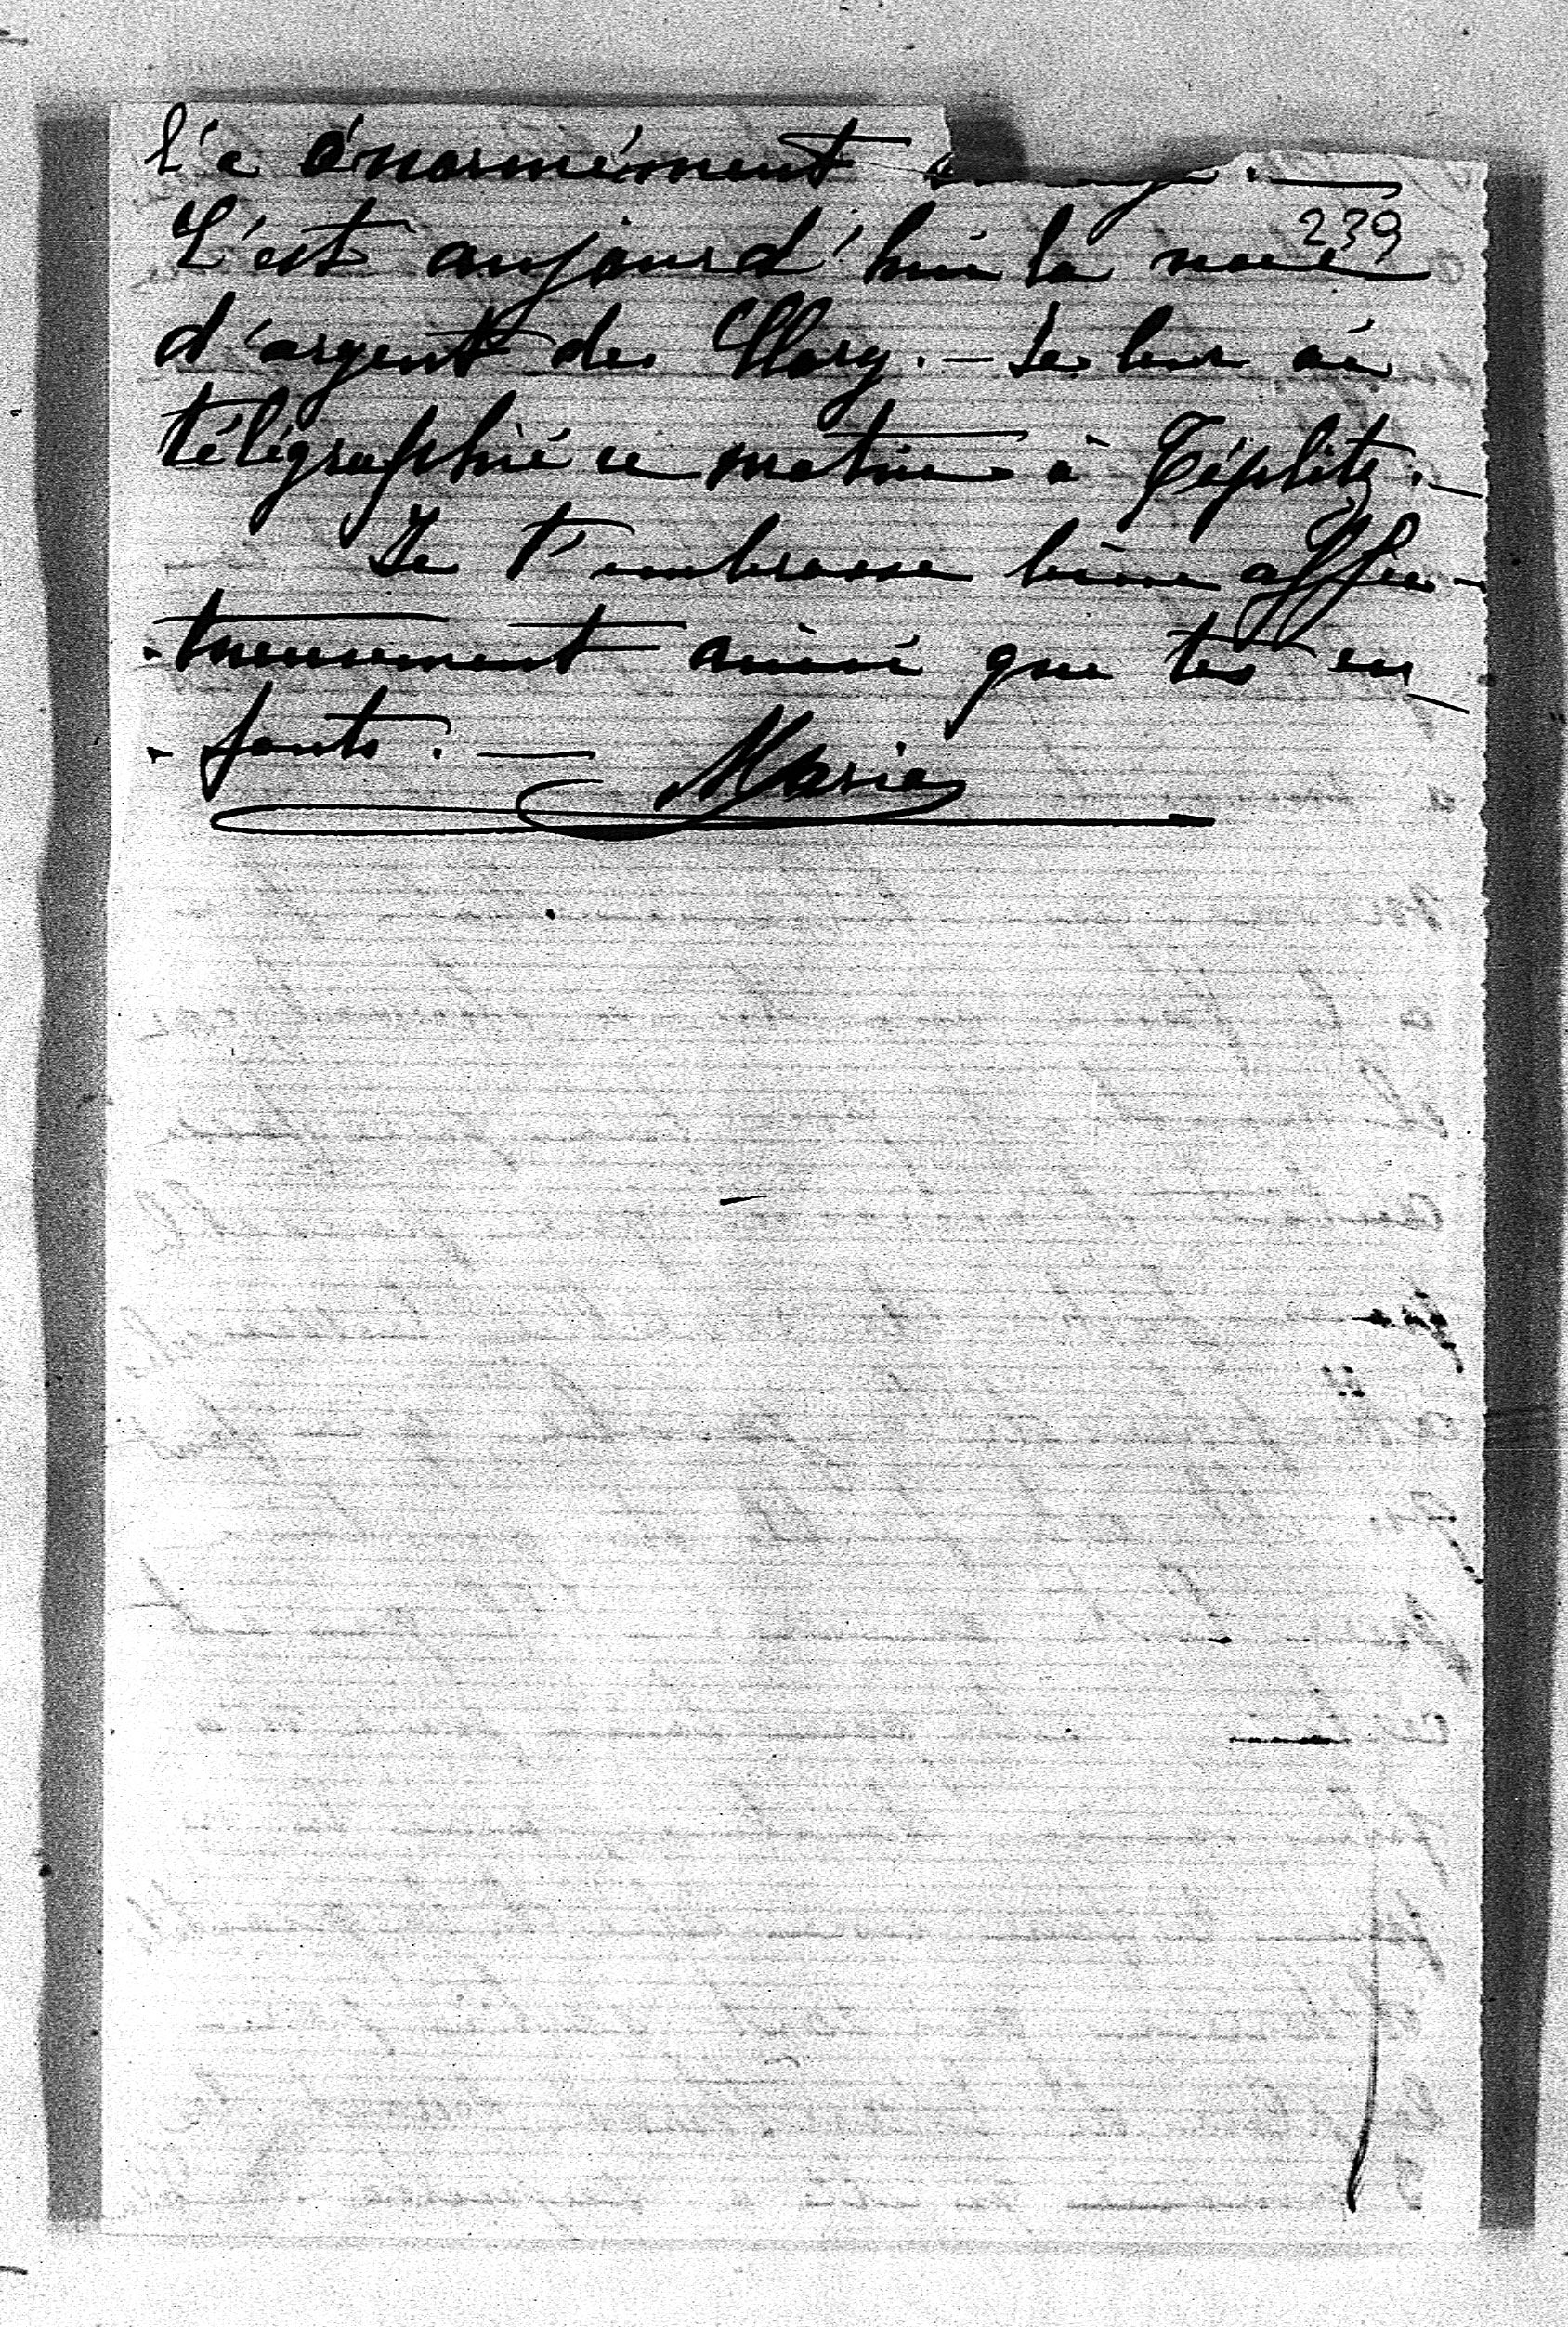 l'a énormément
239
C'est aujourd'hui la noce
d'argent des Clary. — Je leur ai
télégraphié ce matin à Téplitz. —
Je t'embrasse bien affec-
-tueusement ainsi que tes en-
-fants. — Marie